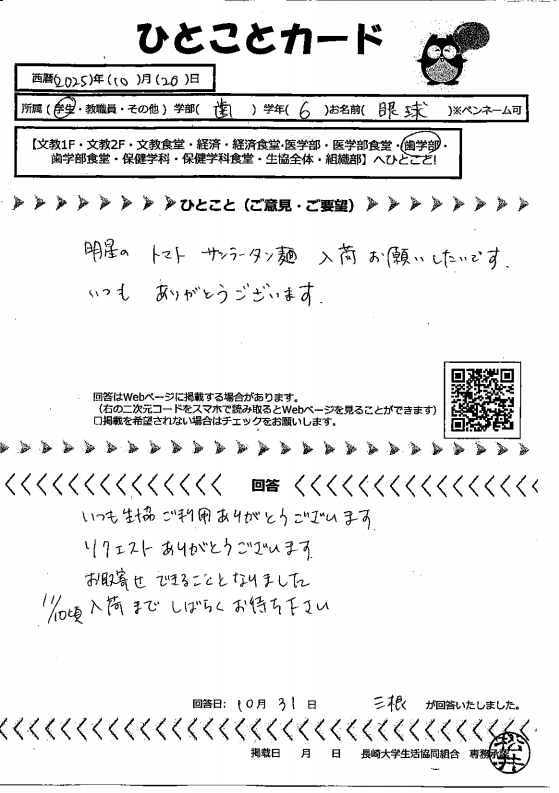 ひとことカード
西暦(2025)年(10)月(20)日
所属(学生・教職員・その他) 学部(歯)学年(6)お名前(眼球)※ペンネーム可
【文教1F・文教2F・文教食堂・経済・経済食堂・医学部・医学部食堂・歯学部・
歯学部食堂・保健学科・保健学科食堂・生協全体・組織部】へひとこと!
ひとこと(ご意見・ご要望)
明星の トマト サンラータン麺 入荷 お願いしたいです.
いつも ありがとうございます.
回答はWebページに掲載する場合があります。
(右の二次元コードをスマホで読み取るとWebページを見ることができます)
□掲載を希望されない場合はチェックをお願いします。
回答
いつも生協ご利用ありがとうございます
リクエストありがとうございます
お取寄せ できることとなりました
11/10頃 入荷まで しばらくお待ち下さい
回答日: 10月 31日 三根 が回答いたしました。
掲載日 月 日 長崎大学生活協同組合 専務承認
松井